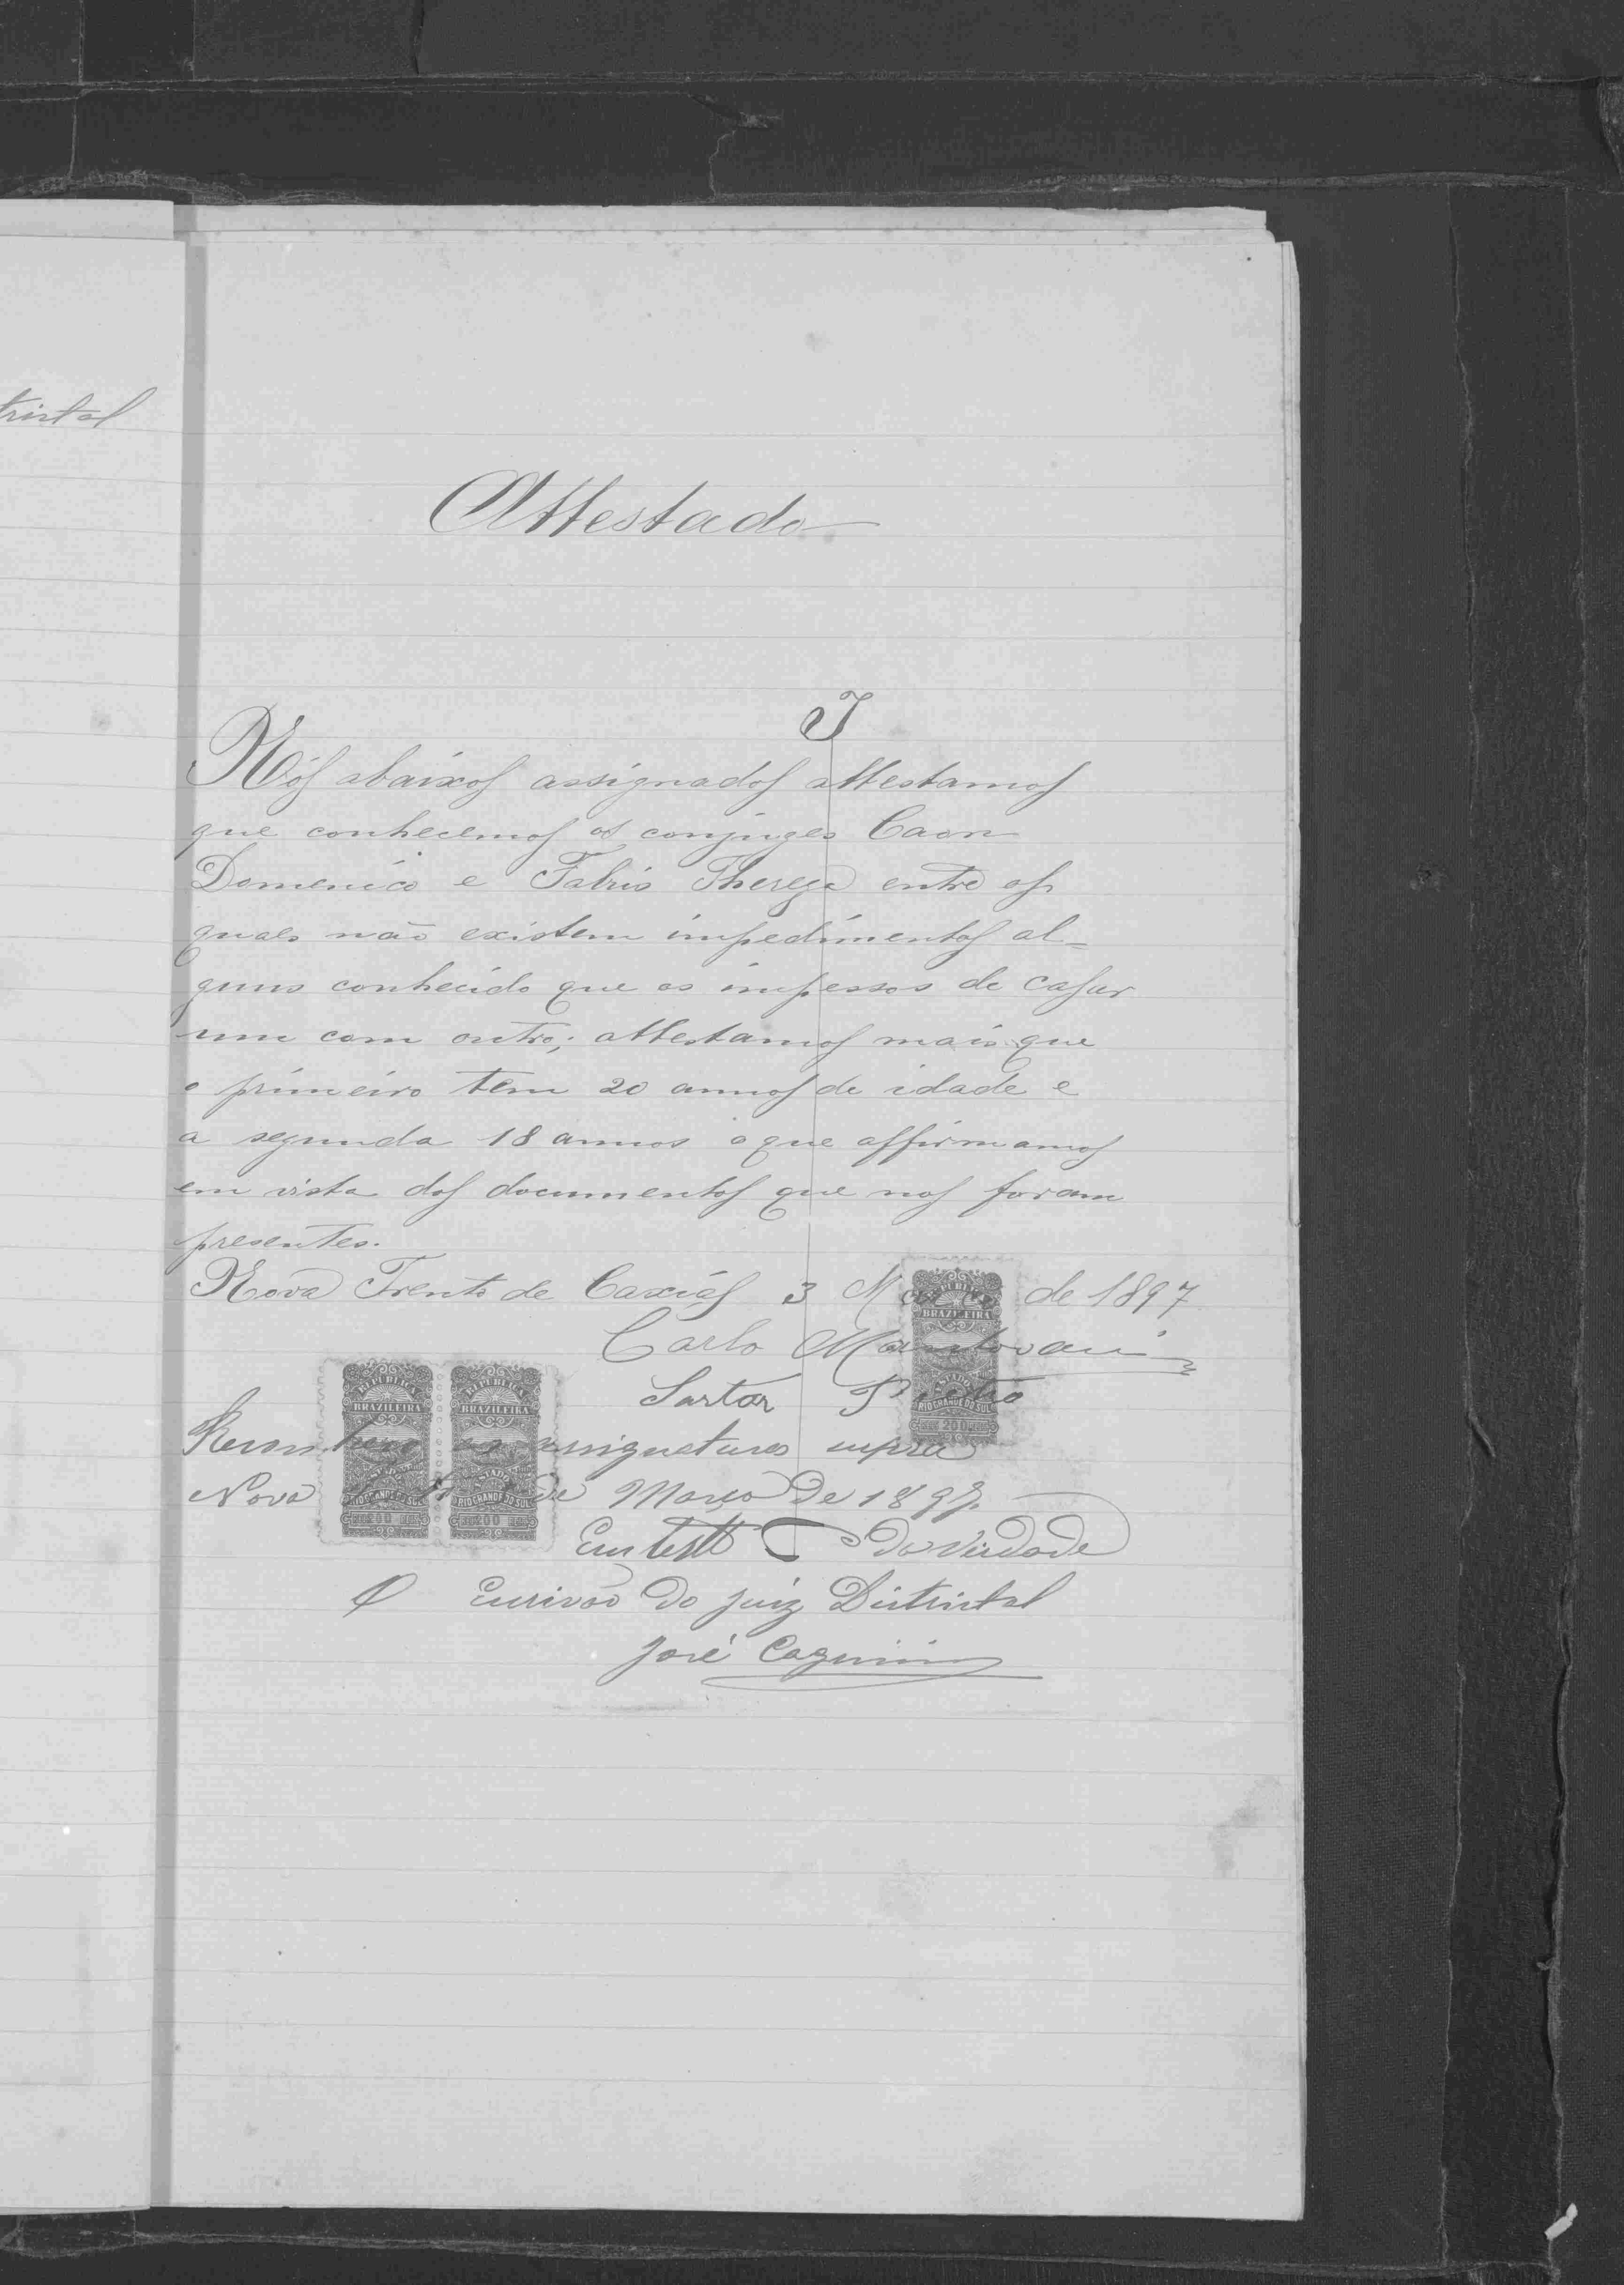 trictal
Attestado
J
Nós abaixos assignados attestamos
que conhecemos os conjuges Caon
Domenico e Fabris Thereza entre os
quaes não existem impedimentos al-
guns conhecido que os impessos de casar
um com outro; attestamos mais que
o primeiro tem 20 annos de idade e
a segunda 18 annos o que affirmamos
em vista dos documentos que nos foram
presentes.
Nova Trento de Caxias 3 Março de 1897
Carlo Mantovani
Sartor Pietro
Reconheço as assignaturas supra
Nova de Março de 1897.
Em testº da verdade
O Escrivão do juiz Districtal
José
REPUBLICA
BRAZILEIRA
ESTADO
RIO GRANDE DO SUL
200
REPUBLICA
BRAZILEIRA
ESTADO
RIO GRANDE DO SUL
200
REPUBLICA
BRAZILEIRA
ESTADO
RIO GRANDE DO SUL
200